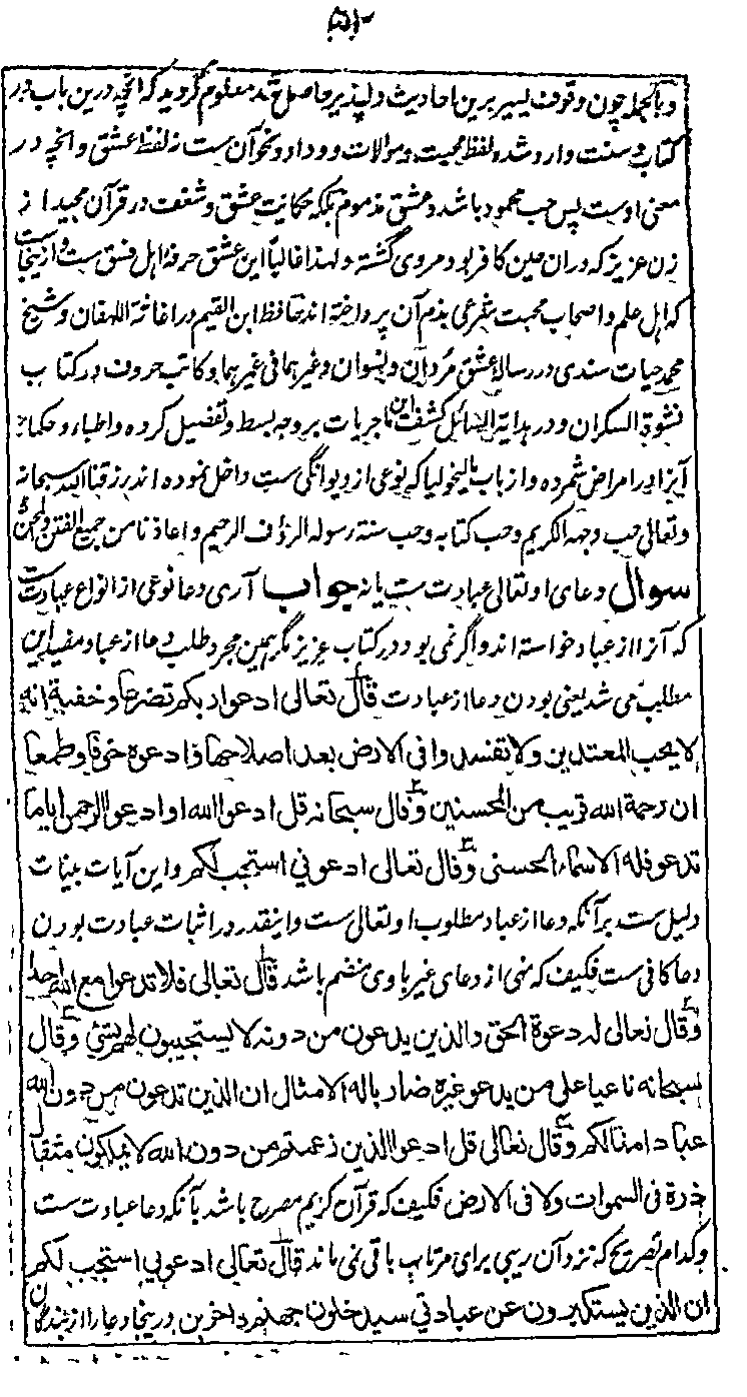 ۵۲
وبالجمله چون وقوف یسیر برین احادیث دلپذیر حاصل شد معلوم گردید که آنچه درین باب در
کتاب و سنت وارد شده لفظ محبت و موالات و وداد و نحو آن ست نه لفظ عشق و آنچه در
معنی اوست پس حب محمود باشد و عشق مذموم بلکه حکایت عشق و شغف در قرآن مجید از
زن عزیز که دران حین کافر بود مروی گشته و لهذا غالباً این عشق حرفهٔ اهل فسق ست و از ینجاست
که اهل علم و اصحاب محبت شرعی بذم آن پرداخته اند حافظ ابن القیم در اغاثة اللهفان و شیخ
محمد حیات سندی در رسالهٔ عشق مُردان و نسوان و غیرهما فی غیرهما و کاتب حروف در کتاب
نشوة السکران و در هدایة السائل کشف این ماجریات بر وجه بسط و تفضیل کرده و اطباء و حکماء
آنرا در امراض شمرده و از باب مالیخولیا که نوعی از دیوانگی ست داخل نموده اند رزقنا الله سبحانه
وتعالی حب وجهه الکریم وحب کتابه وحب سنة رسوله الرؤف الرحیم واعاذنا من جمیع الفتن والمحن
سوال دعای او تعالی عبادت ست یا نه جواب آری دعا نوعی از انواع عبادت ست
که آنرا از عباد خواسته اند و اگر نمی بود در کتاب عزیز مگر همین مجرد طلب دعا از عباد مفید این
مطلب می شد یعنی بودن دعا از عبادت قال تعالی ادعوا ربکم تضرعا وخفیة انه
لا یحب المعتدین ولا تفسدوا فی الارض بعد اصلاحها وادعوه خوفا وطمعا
ان رحمة الله قریب من المحسنین وقال سبحانه قل ادعوا الله او ادعوا الرحمن ایاما
تدعو فله الاسماء الحسنی وقال تعالی ادعونی استجب لکم و این آیات بینات
دلیل ست بر آنکه دعا از عباد مطلوب او تعالی ست و اینقدر در اثبات عبادت بودن
دعا کافی ست فکیف که نهی از دعای غیر باوی منضم باشد قال تعالی فلا تدعوا مع الله احدا
وقال تعالی له دعوة الحق والذین یدعون من دونه لا یستجیبون لهم بشئ وقال
سبحانه ناعیا علی من یدعو غیره ضاربا له الامثال ان الذین تدعون من دون الله
عباد امثالکم وقال تعالی قل ادعوا الذین زعمتم من دون الله لا یملکون مثقال
ذرة فی السموات ولا فی الارض فکیف که قرآن کریم مصرح باشد بآنکه دعا عبادت ست
و کدام تصریح که نزد آن ریبی برای مرتاب باقی نمی ماند قال تعالی ادعونی استجب لکم
ان الذین یستکبرون عن عبادتی سیدخلون جهنم داخرین درینجا دعا را از بندگان